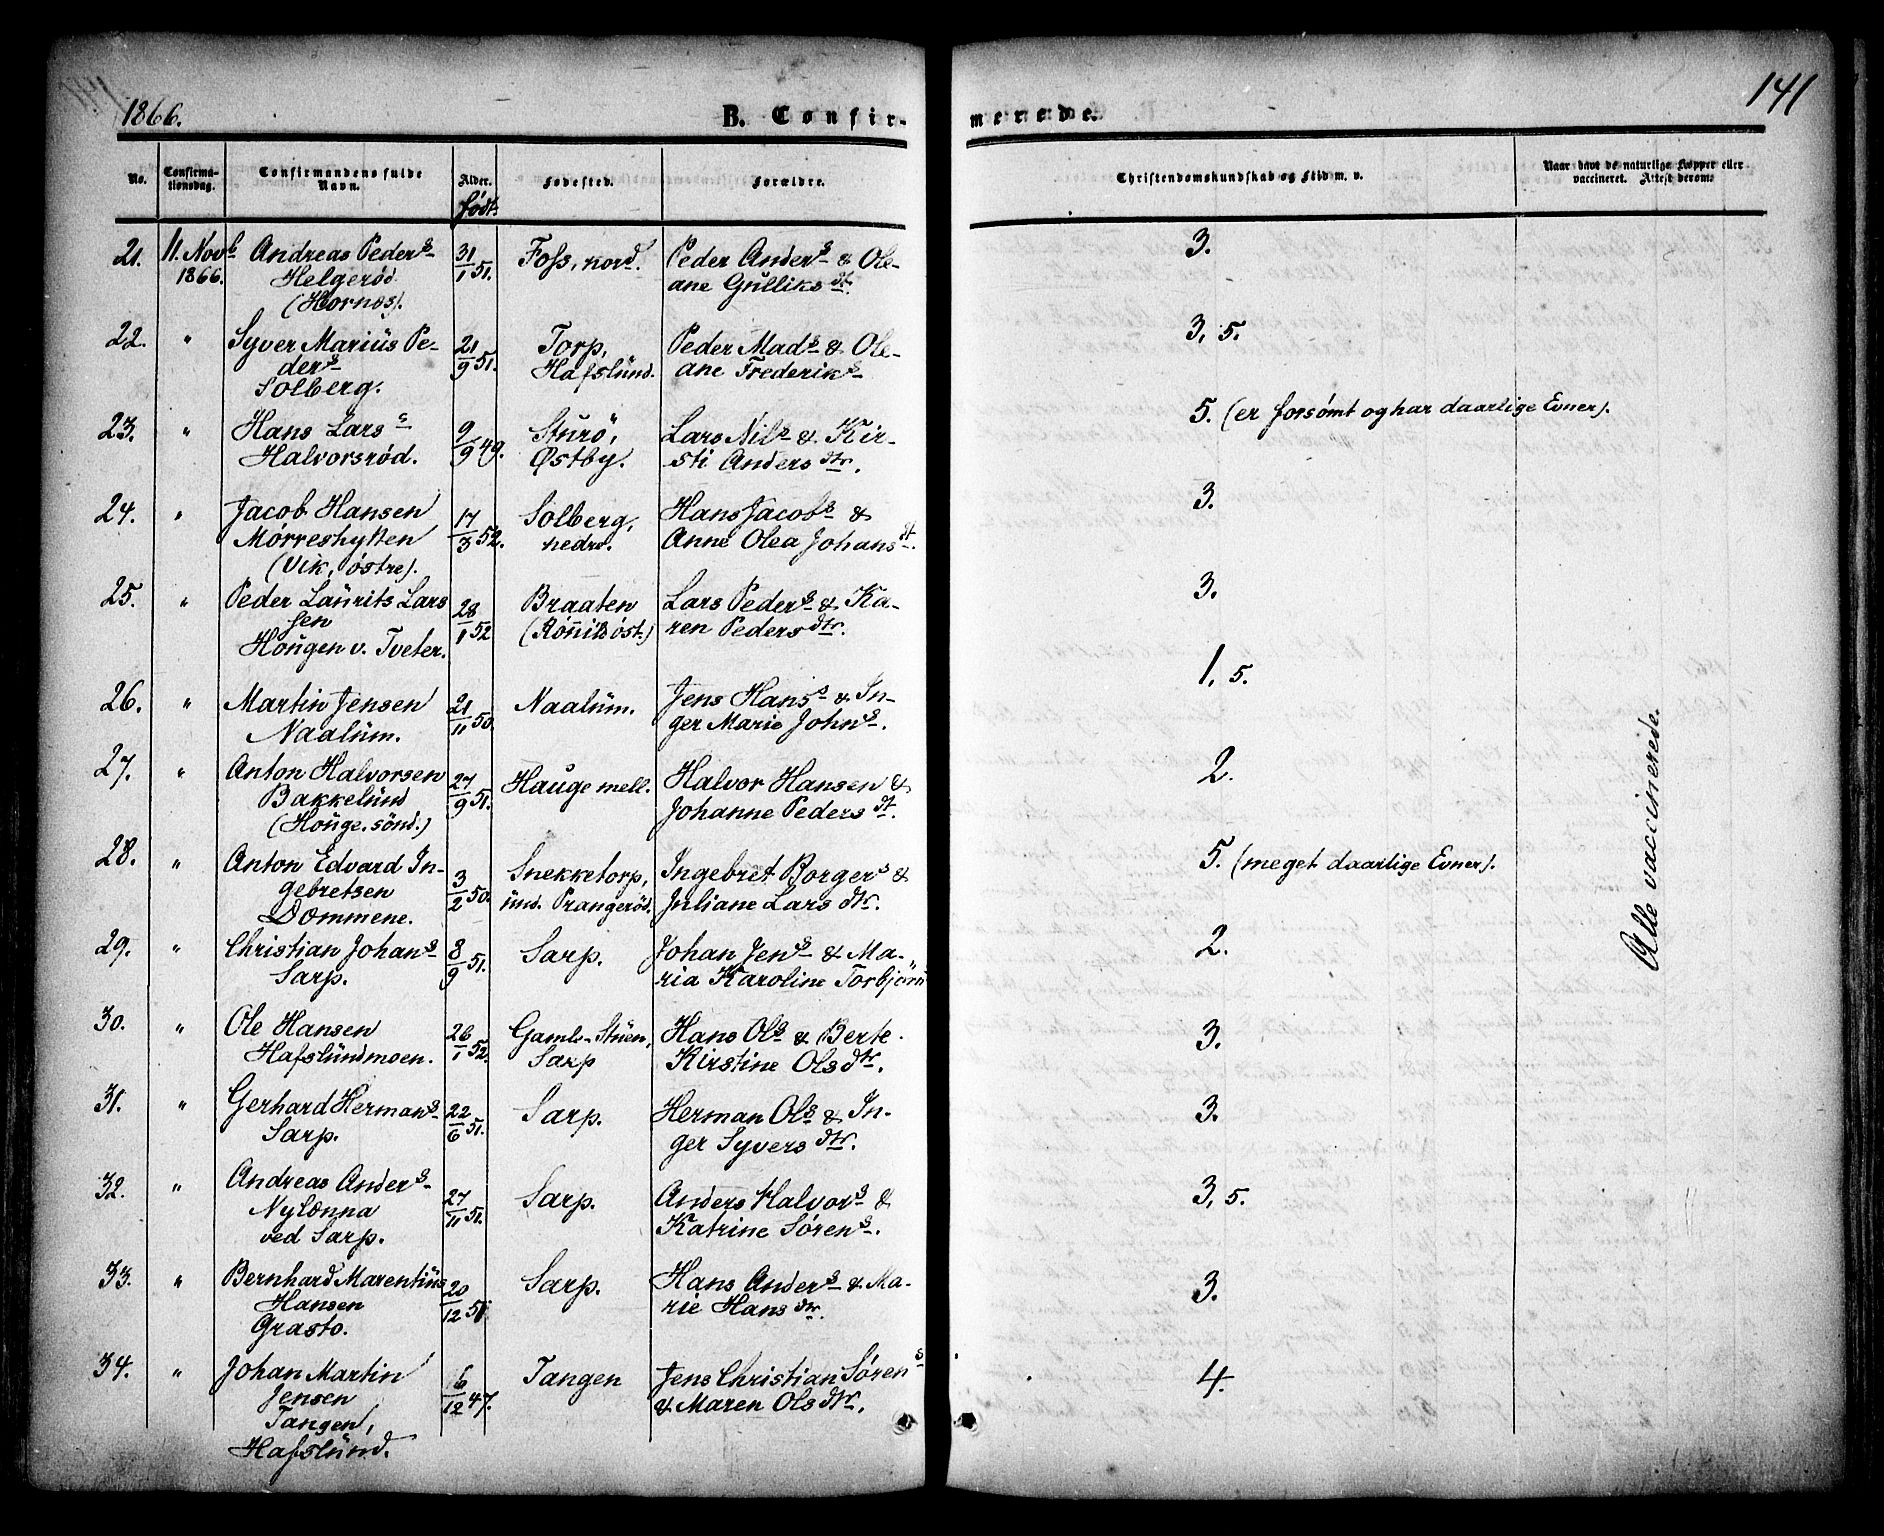 1866.
B. Confir-
merede.
141
No.
Confirma-
tionsdag.
Confirmandens fulde
Navn.
Alder.
födt
Fødested.
Forældre.
Christendomskundskab og Flid m. v.
Naar havt de naturlige Kopper eller
vaccineret. Attest derom.
21. 11. Novb 1866. Andreas Peders
Helgerød
(Hornæs).
31/1 51. Foss, nord. Peder Anders & Ole-
ane Gulliks dt.
3.
22. " Syver Marius Pe-
ders
Solberg.
21/9 51. Torp,
Hafslund.
Peder Mads & Ole-
ane Frederiks
3, 5.
23. " Hans Lars
Halvorsrød.
9/9 49. Sturö,
Østby.
Lars Nils & Kir-
sti Anders dtr.
5. (er forsømt og har daarlige Evner).
24. " Jacob Hansen
Mørreshytten
(Vik, østre).
17/3 52. Solberg,
nedre.
Hans Jacobs &
Anne Olea Johans dt.
3.
25. " Peder Laurits Lars
sen
Hougen v. Tveter.
28/1 52 Braaten
Lars Peders & Ka-
ren Peders dtr.
3.
26. " Martin Jensen
Naalum.
21/11 50. Naalum. Jens Hans & In-
ger Marie Johns.
1, 5.
27. " Anton Halvorsen
Bakkelund
(Houge. sönd.)
27/9 51. Hauge mell. Halvor Hansen &
Johanne Peders dt.
2.
28. " Anton Edvard In-
gebretsen
Dommene.
3/2 50. Snekketorp,
und. Prangerød.
Ingebret Borgers &
Juliane Lars dtr.
5. (meget daarlige Evner).
29. " Christian Johans
Sarp.
8/9 51. Sarp. Johan Jens & Ma-
ria Karoline Torbjörn
2.
30. " Ole Hansen
Hafslundmoen.
26/1 52. Gamle-Stuen,
Sarp
Hans Ols & Berte
Kirstine Ols dtr.
3.
31. " Gerhard Hermans
Sarp.
22/6 51. Sarp. Herman Ols & In-
ger Syvers dtr.
3.
32. " Andreas Anders
Nylænna
ved Sarp.
27/11 51. Sarp. Anders Halvors &
Katrine Sørens.
3, 5.
33. " Bernhard Marentius
Hansen
Grasto.
20/12 51. Sarp. Hans Anders & Ma-
rie Hans dtr.
3.
34. " Johan Martin
Jensen
Tangen,
Hafslund.
6/12 47. Tangen Jens Christian Sørens
& Maren Ols dtr.
4.
Alle vaccinerede.